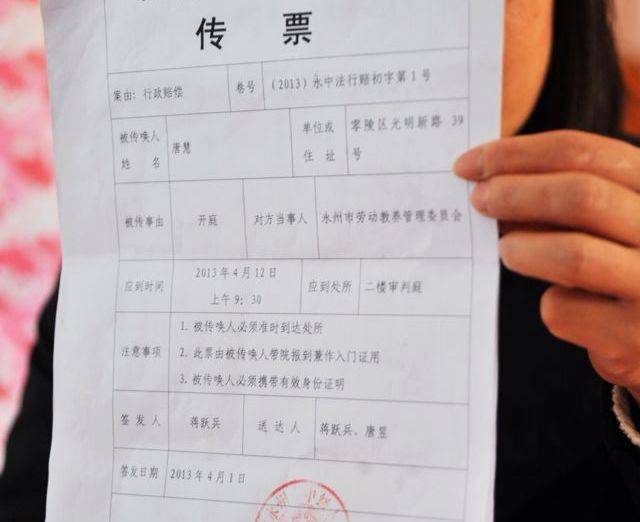 传 票
案由：行政赔偿 卷号 （2013）永中法行赔初字第1号
被传唤人 姓 名 唐慧 单位或 住 址 零陵区光明新路 39 号
被传事由 开庭 对方当事人 永州市劳动教养管理委员会
应到时间 2013年4月12日 上午9：30 应到处所 二楼审判庭
注意事项
1. 被传唤人必须准时到达处所
2. 此票由被传唤人带院报到兼作入门证用
3. 被传唤人必须携带有效身份证明
签 发 人 蒋跃兵 送 达 人 蒋跃兵、唐昱
签发日期 2013年4月1日